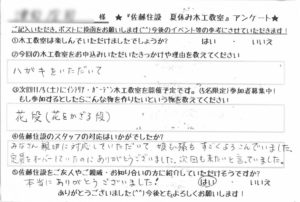 様
★『佐藤住設 夏休み木工教室』アンケート★
ご記入いただき、ポストに投函をお願いします(^^)今後のイベント等の参考にさせていただきます!
①木工教室は楽しんでいただけましたでしょうか? はい いいえ
②今回の木工教室をお申込みいただいたきっかけや理由を教えてください
ハガキをいただいて
もし参加するとしたらこんな物を作りたいという物を教えてください
花段(花をかざる段)
④佐藤住設のスタッフの対応はいかがでしたか?
みなさん親切に対応していただいて 娘も孫も すごくよろこんでいました。
定員をオーバーしていたのにありがとうございました。次回も来たいと言ってました。
⑤佐藤住設をご友人やご親戚・お知り合いの方に紹介していただけそうですか?
本当にありがとうございました! はい いいえ
ありがとうございました(^^)今後ともよろしくお願いします!